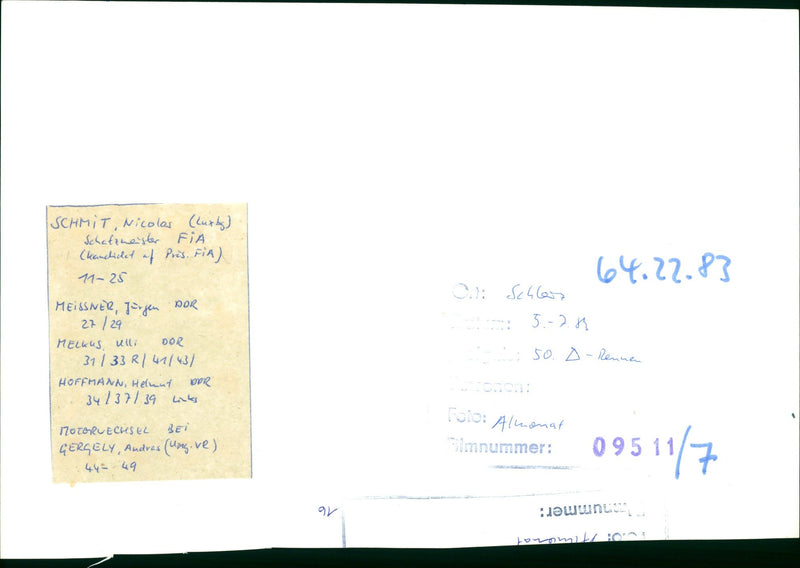 SCHMIT, Nicolas (Luxbg)
Schatzmeister FIA
(Kandidat af Präs. FIA)
11-25
MEISSNER, Jürgen DDR
27/29
MELKUS, Ulli DDR
31/33 R/41/43/
HOFFMANN, Helmut DDR
34/37/39 links
MOTORWECHSEL BEI
GERGELY, Andras (Ung. VR)
44- 49
64.22.83
Ort: Schleiz
Datum: 5.-7
50. Δ-Rennen
Personen:
Foto: Almonat
Filmnummer: 09511/7
16
Filmnummer:
Foto: Almonat